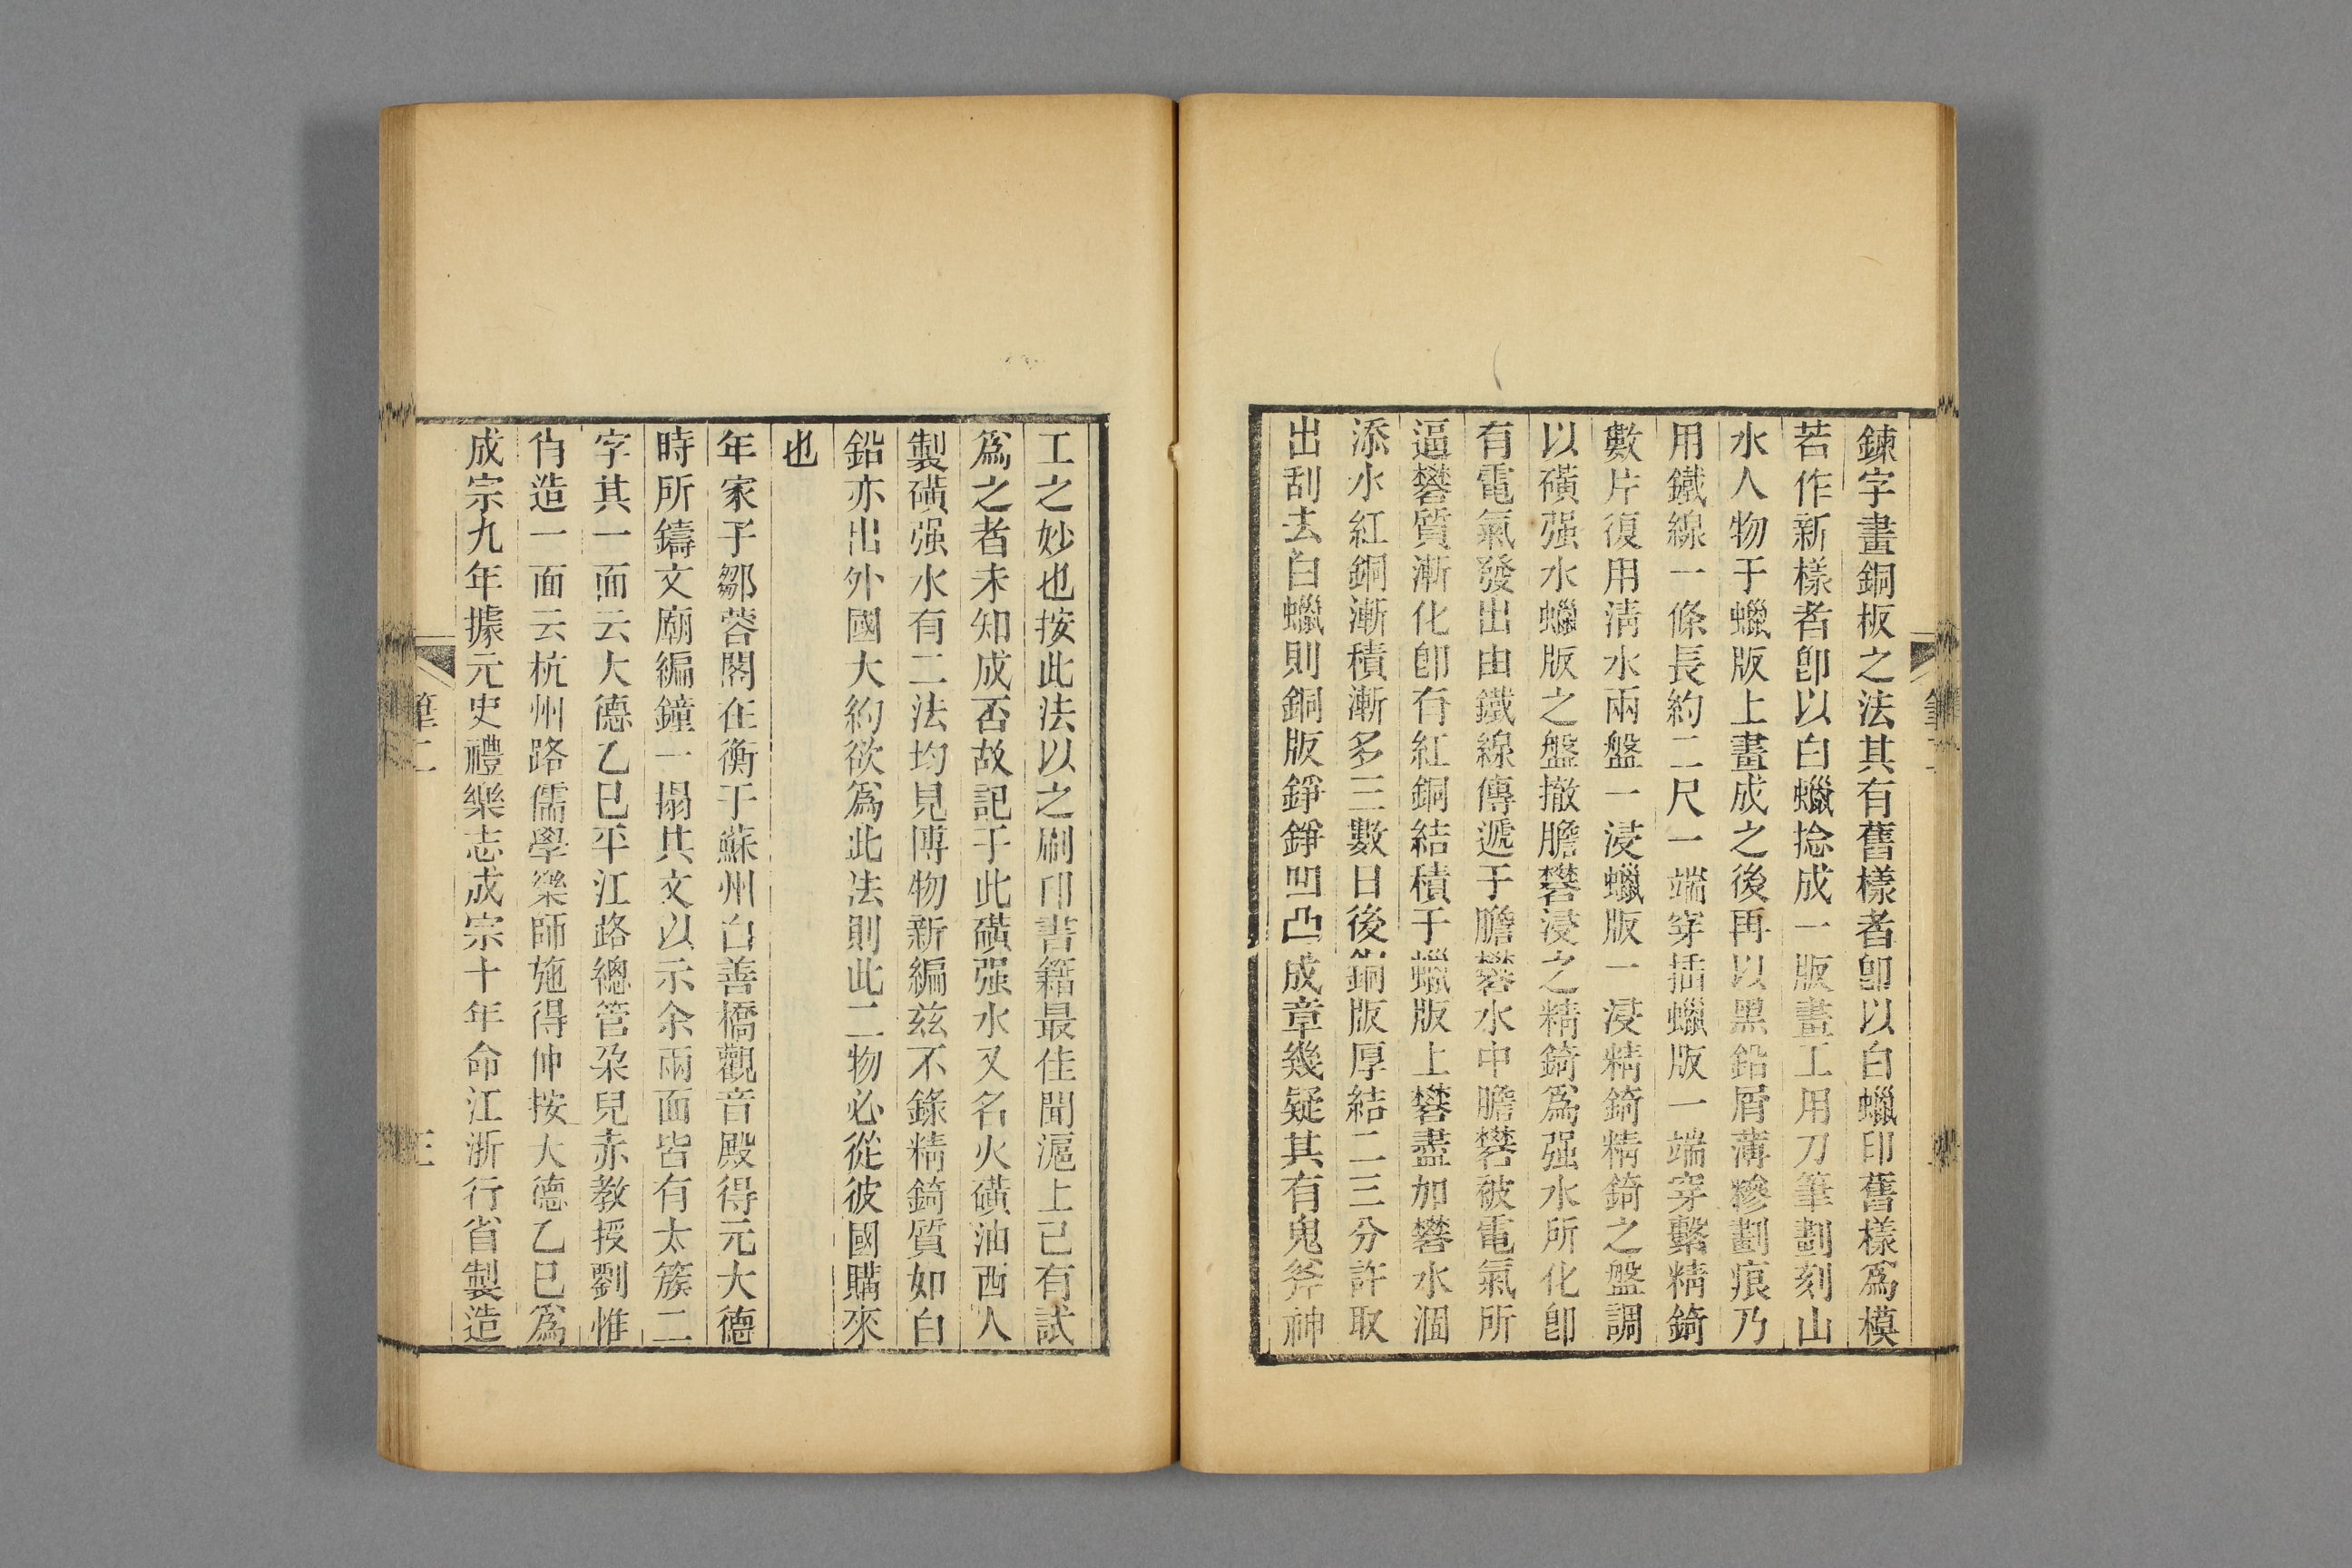 鍊字畫銅板之法其有舊樣者卽以白蠟印舊樣爲模
若作新樣者卽以白蠟捻成一版畫工用刀筆劃刻山
水人物于蠟版上畫成之後再以黑鉛屑薄糝劃痕乃
用鐵線一條長約二尺一端穿插蠟版一端穿繫精錡
數片復用淸水兩盤一浸蠟版一浸精錡精錡之盤調
以磺强水蠟版之盤撤膽礬浸之精錡爲强水所化卽
有電氣發出由鐵線傳遞于膽礬水中膽礬被電氣所
逼礬質漸化卽有紅銅結積于蠟版上礬盡加礬水涸
添水紅銅漸積漸多三數日後銅版厚結二三分許取
出刮去白蠟則銅版錚錚凹凸成章幾疑其有鬼斧神
工之妙也按此法以之刷印書籍最佳聞滬上已有試
爲之者未知成否故記于此磺强水又名火磺油西人
製磺强水有二法均見博物新編茲不錄精錡質如白
鉛亦出外國大約欲爲此法則此二物必從彼國購來
也
年家子鄒蓉閣在衡于蘇州白善橋觀音殿得元大德
時所鑄文廟編鐘一搨其文以示余兩面皆有太簇二
字其一面云大德乙巳平江路總管朶兒赤教授劉惟
肖造一面云杭州路儒學樂師施得仲按大德乙巳爲
成宗九年據元史禮樂志成宗十年命江浙行省製造
筆二
三